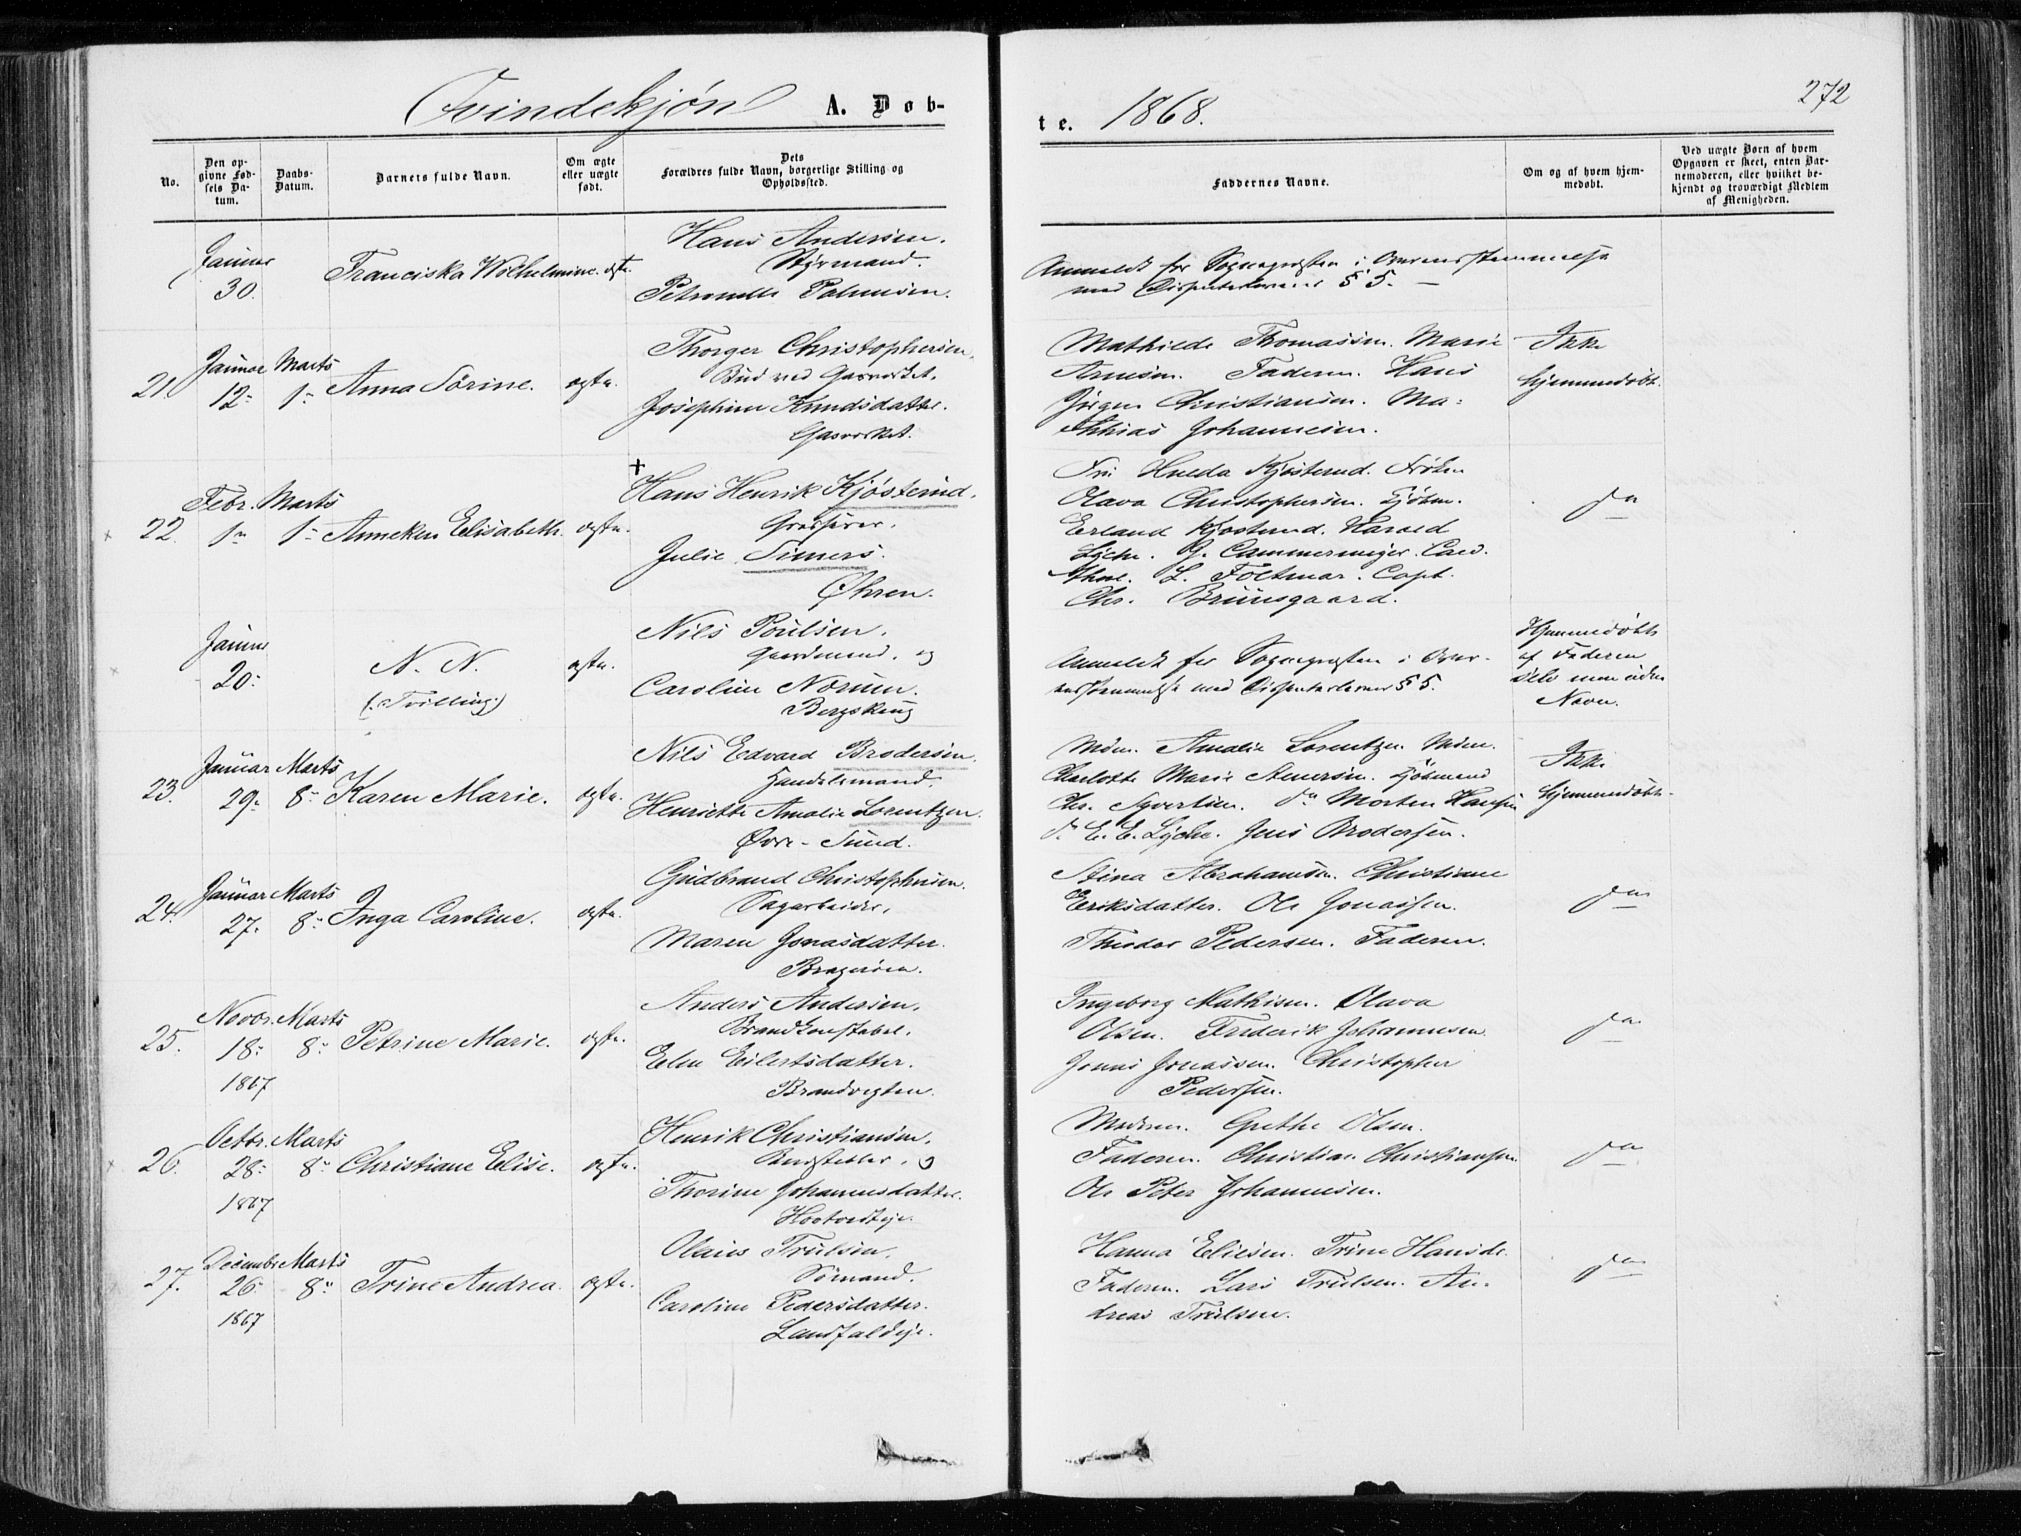 Qvindekjøn A. Døb-
te. 1868.
272
No.
Den op-
givne Fød-
sels Da-
tum.
Daabs-
Datum.
Barnets fulde Navn.
Om ægte
eller uægte
født.
Dets
Forældres fulde Navn, borgerlige Stilling og
Opholdssted.
Faddernes Navne.
Om og af hvem hjem-
medøbt.
Ved uægte Børn af hvem
Opgaven er skeet, enten Bar-
nemoderen, eller hvilket be-
kjendt og troværdigt Medlem
af Menigheden.
Januar
30.
Franciska Wilhelmine.
ægte.
Hans Andersen.
Styrmand.
Petronelle Palmesen.
Anmeldt for Sognepræsten i Overensstemmelse
med Dissenterloven § 5. —
21.
Januar
12
Marts
1
Anna Sorine.
ægte.
Thorger Christophersen,
Bud ved Gasverket.
Josephine Knudsdatter.
Gasverket.
Mathilde Thomassen. Marie
Arnesen. Faderen. Hans
Jørgen Christiansen. Ma-
thias Johannesen.
Ikke
hjemmedøbt.
22.
Febr.
1
Marts
1
Anneken Elisabeth.
ægte.
+
Hans Henrik Kjøsterud.
Grosserer.
Julie Simers.
Øhren.
Fru Hulda Kjøsterud. Frøken
Olava Christophersen. Kjøbm.
Erland Kjøsterud. Harald
Lyche. G. Cammermeyer. Cand.
L. Foltmar. Capt.
Chr. Bruusgaard.
do
Januar
20.
N. N.
(: Tvilling :)
ægte.
Nils Poulsen.
Gaardmand, og
Caroline Norum.
Bergskoug
Anmeldt for Sognepræsten i Over-
ensstemmelse med Dissenterloven § 5.
Hjemmedøbt
af Faderen
selv men uden
Navn.
23.
Januar
29
Marts
8
Karen Marie.
ægte.
Nils Edvard Brodersen.
Handelsmand.
Henriette Amalie Lorentzen.
Øvre-Sund.
Mdm. Amalie Lorentzen. Mdm.
Charlotte Marie Stenersen. Kjøbmand
Chr. Syvertsen. do Morten Hansen
do E. E. Lyche. Jens Brodersen.
Ikke
hjemmedøbt.
24.
Januar
27.
Marts
8
Inga Caroline.
ægte.
Gudbrand Christophersen.
Sagarbeider.
Maren Jonasdatter.
Bragerøen.
Stina Abrahamsen. Christiane
Eriksdatter. Ole Jonassen.
Theodor Pedersen. Faderen.
do
25.
Novbr.
18
1867
Marts
8
Petrine Marie.
ægte.
Anders Andersen.
Brandkonstabel.
Elen Eilertsdatter.
Brandvagten.
Ingeborg Mathisen. Olava
Olsen. Frederik Johannesen
Jonas Jonassen. Christopher
Pedersen.
do
26.
Octbr.
28
1867
Marts
8
Christiane Elise.
ægte.
Henrik Christiansen.
Thorine Johannesdatter.
Moderen. Grethe Olsen.
Faderen. Christian Christiansen.
Ole Peter Johannesen.
do
27.
December
26
1867
Marts
8
Trine Andrea.
ægte.
Olaus Trulsen.
Sømand.
Caroline Pedersdatter.
Landfaldeje.
Hanna Eliesen. Trine Hansdr.
Faderen. Lars Trulsen. An-
dreas Trulsen.
do